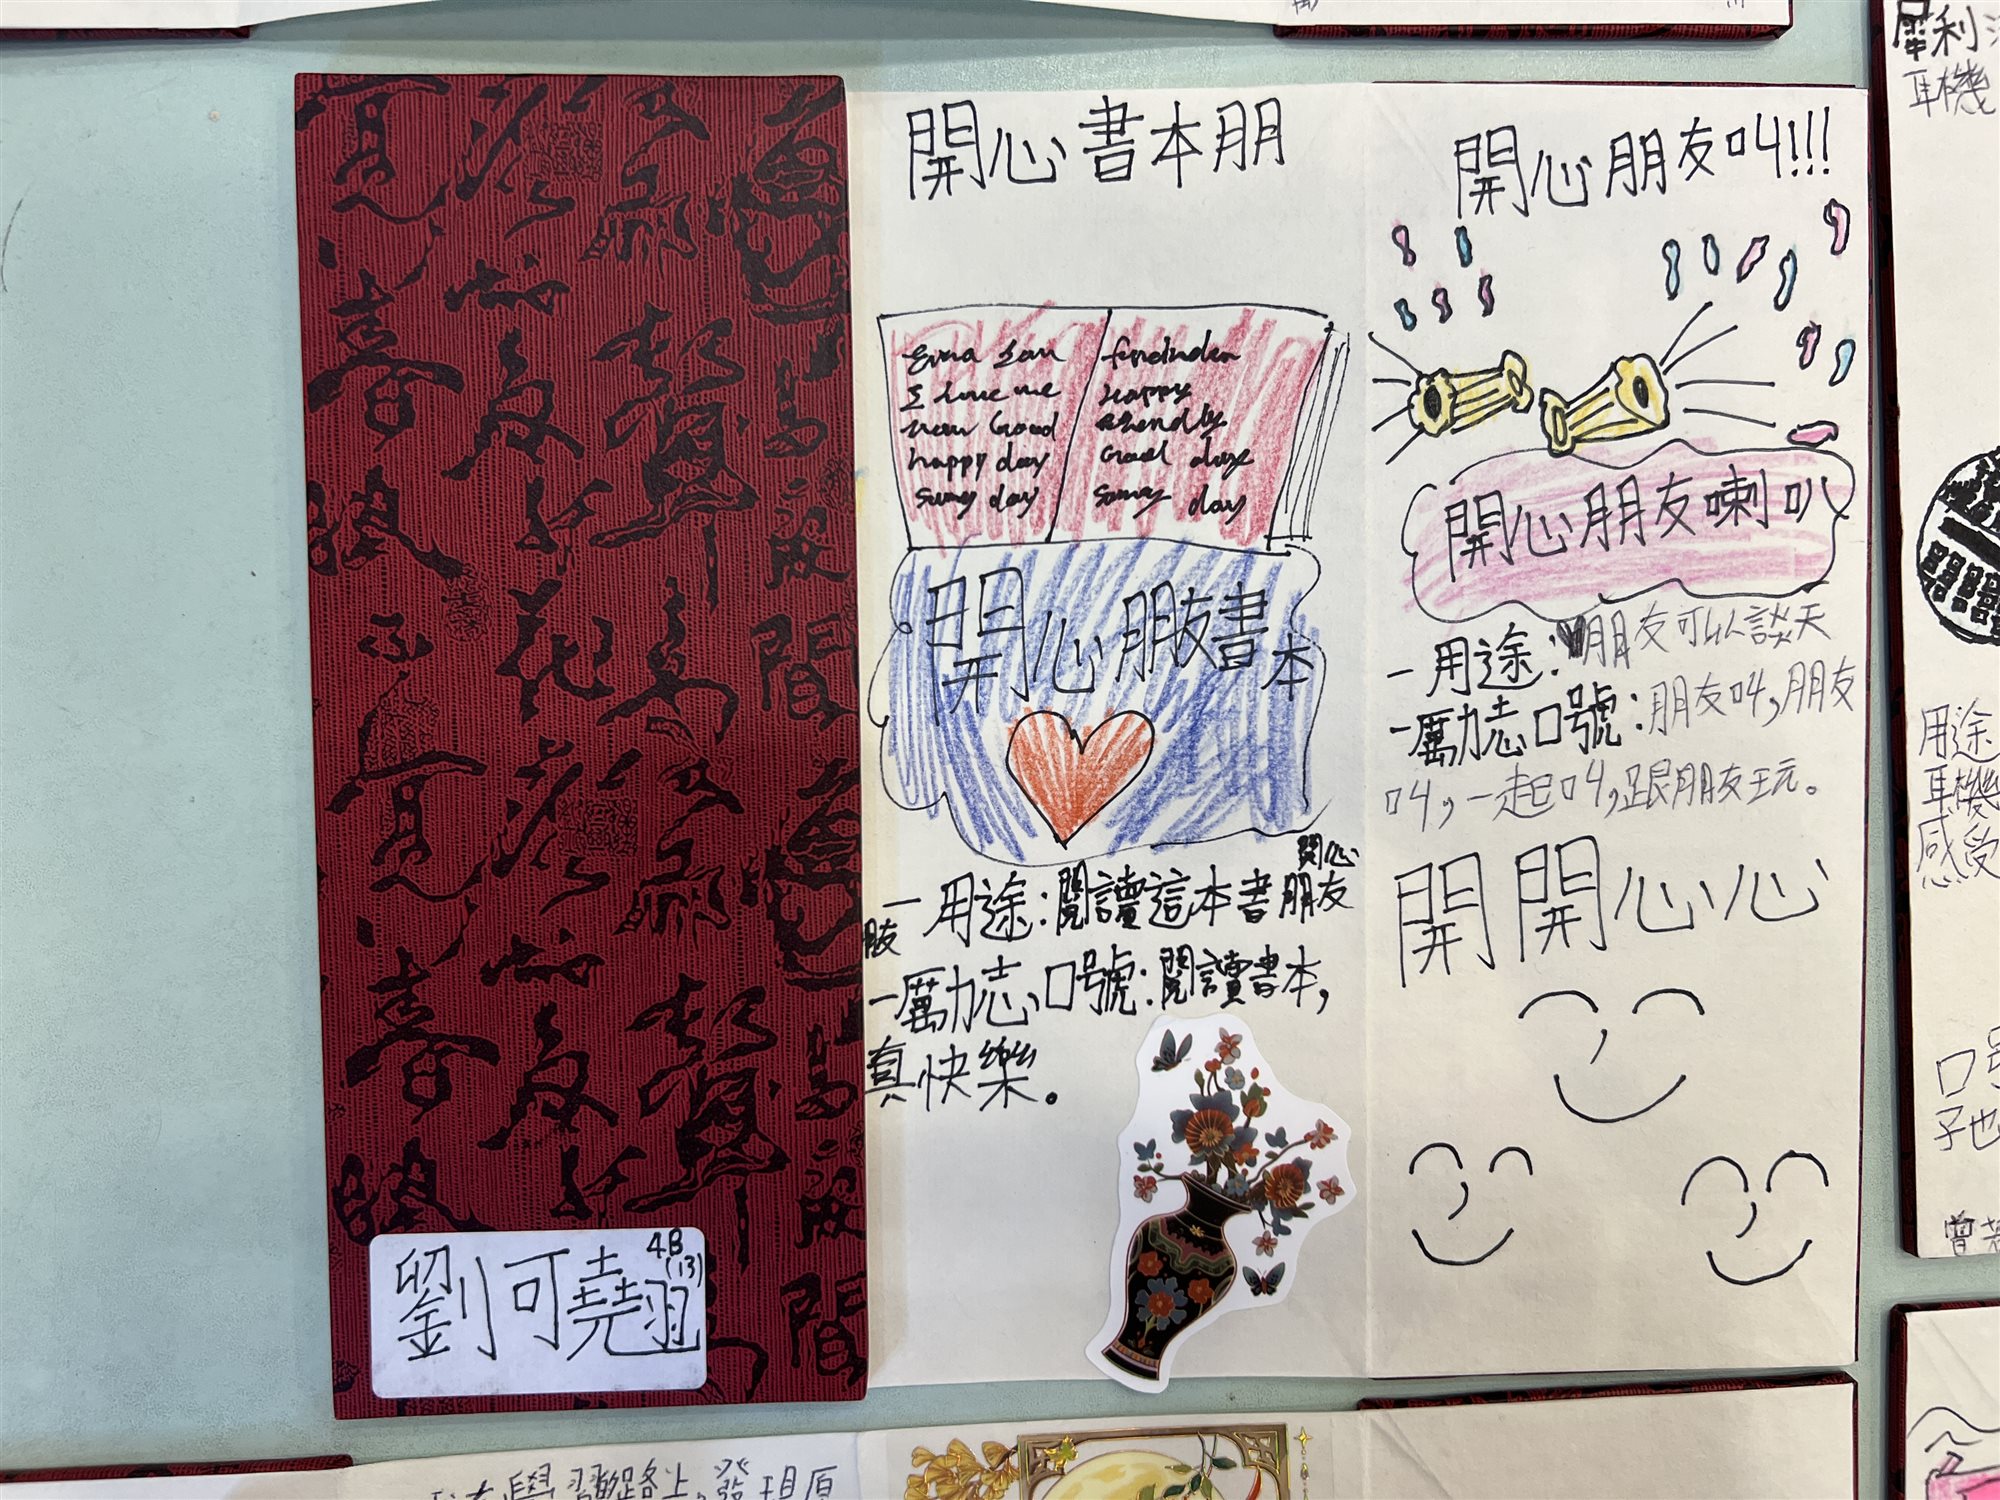 劉可翹
4B
(13)
開心書本朋
I love me
new Good
happy day
sunny day
happy
Good days
sunny day
開心朋友書本
開心
一用途:閱讀這本書朋友
朋友
一勵志口號:閱讀書本,
真快樂。
開心朋友叫!!!
開心朋友喇叭
一用途:朋友可以談天
一勵志口號:朋友叫,朋友
叫,一起叫,跟朋友玩。
開開心心
犀利
耳機
用途
耳機
感受
口號
子也